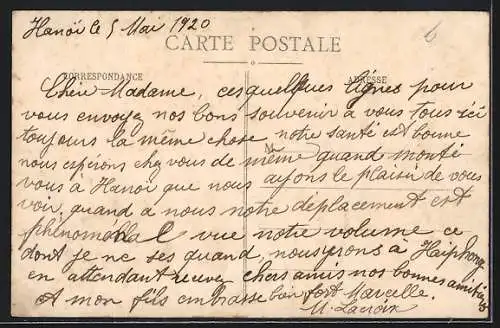 Hanoï le 5 Mai 1920
CARTE POSTALE
CORRESPONDANCE
ADRESSE
Chère Madame, ces quelques lignes pour
vous envoyez nos bons souvenir a vous tous ici
toujours la même chose, notre santé est bonne
nous espérons chez vous de même quand monté
vous à Hanoï que nous ayons le plaisir de vous
voir, quand a nous notre déplacement est
phénoménal vue notre volume ce
dont je ne ses quand, nous irons à Haiphong
en attendant recevez chers amis nos bonnes amitiés
A mon fils embrasse bien fort Marcelle.
M. Lacroix